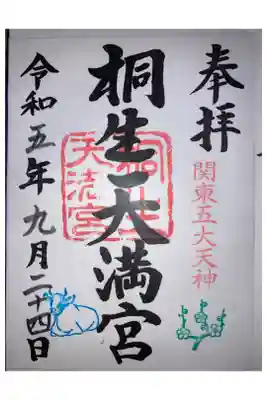 奉拝
関東五大天神
桐生天満宮
令和五年九月二十四日